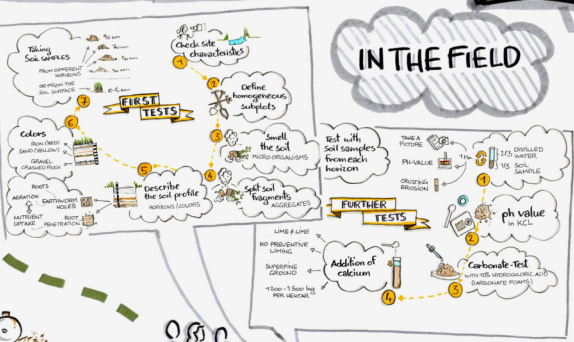 IN THE FIELD
FIRST
TESTS
1
Check site
characteristics
2
Define
homogeneous
subplots
3
Smell
the soil
MICROORGANISMS
4
Split soil
fragments
AGGREGATES
5
Describe
the soil profile
HORIZONS/COLORS
ROOTS
AERATION
EARTHWORM
HOLES
NUTRIENT
UPTAKE
ROOT
PENETRATION
6
Colors
IRON (RED)
SAND (YELLOW)
GRAVEL
CRASHED ROCK
7
Taking
SOIL SAMPLES
FROM DIFFERENT
HORIZONS
OR FROM THE
SOIL SURFACE
90 cm
60 cm
30 cm
0-5 cm
Test with
soil samples
from each
horizon
FURTHER
TESTS
TAKE A
PICTURE
PH-VALUE
CRUSTING
EROSION
2/3 DISTILLED
WATER
1/3 SOIL
SAMPLE
1
2
ph value
in KCL
3
Carbonate-Test
WITH 10% HYDROCHLORIC ACID
(CARBONATE FOAMS)
4
Addition of
calcium
LIME ≠ LIME
NO PREVENTIVE
LIMING
SUPERFINE
GROUND
1200 - 1.500 kg
PER HEKTAR